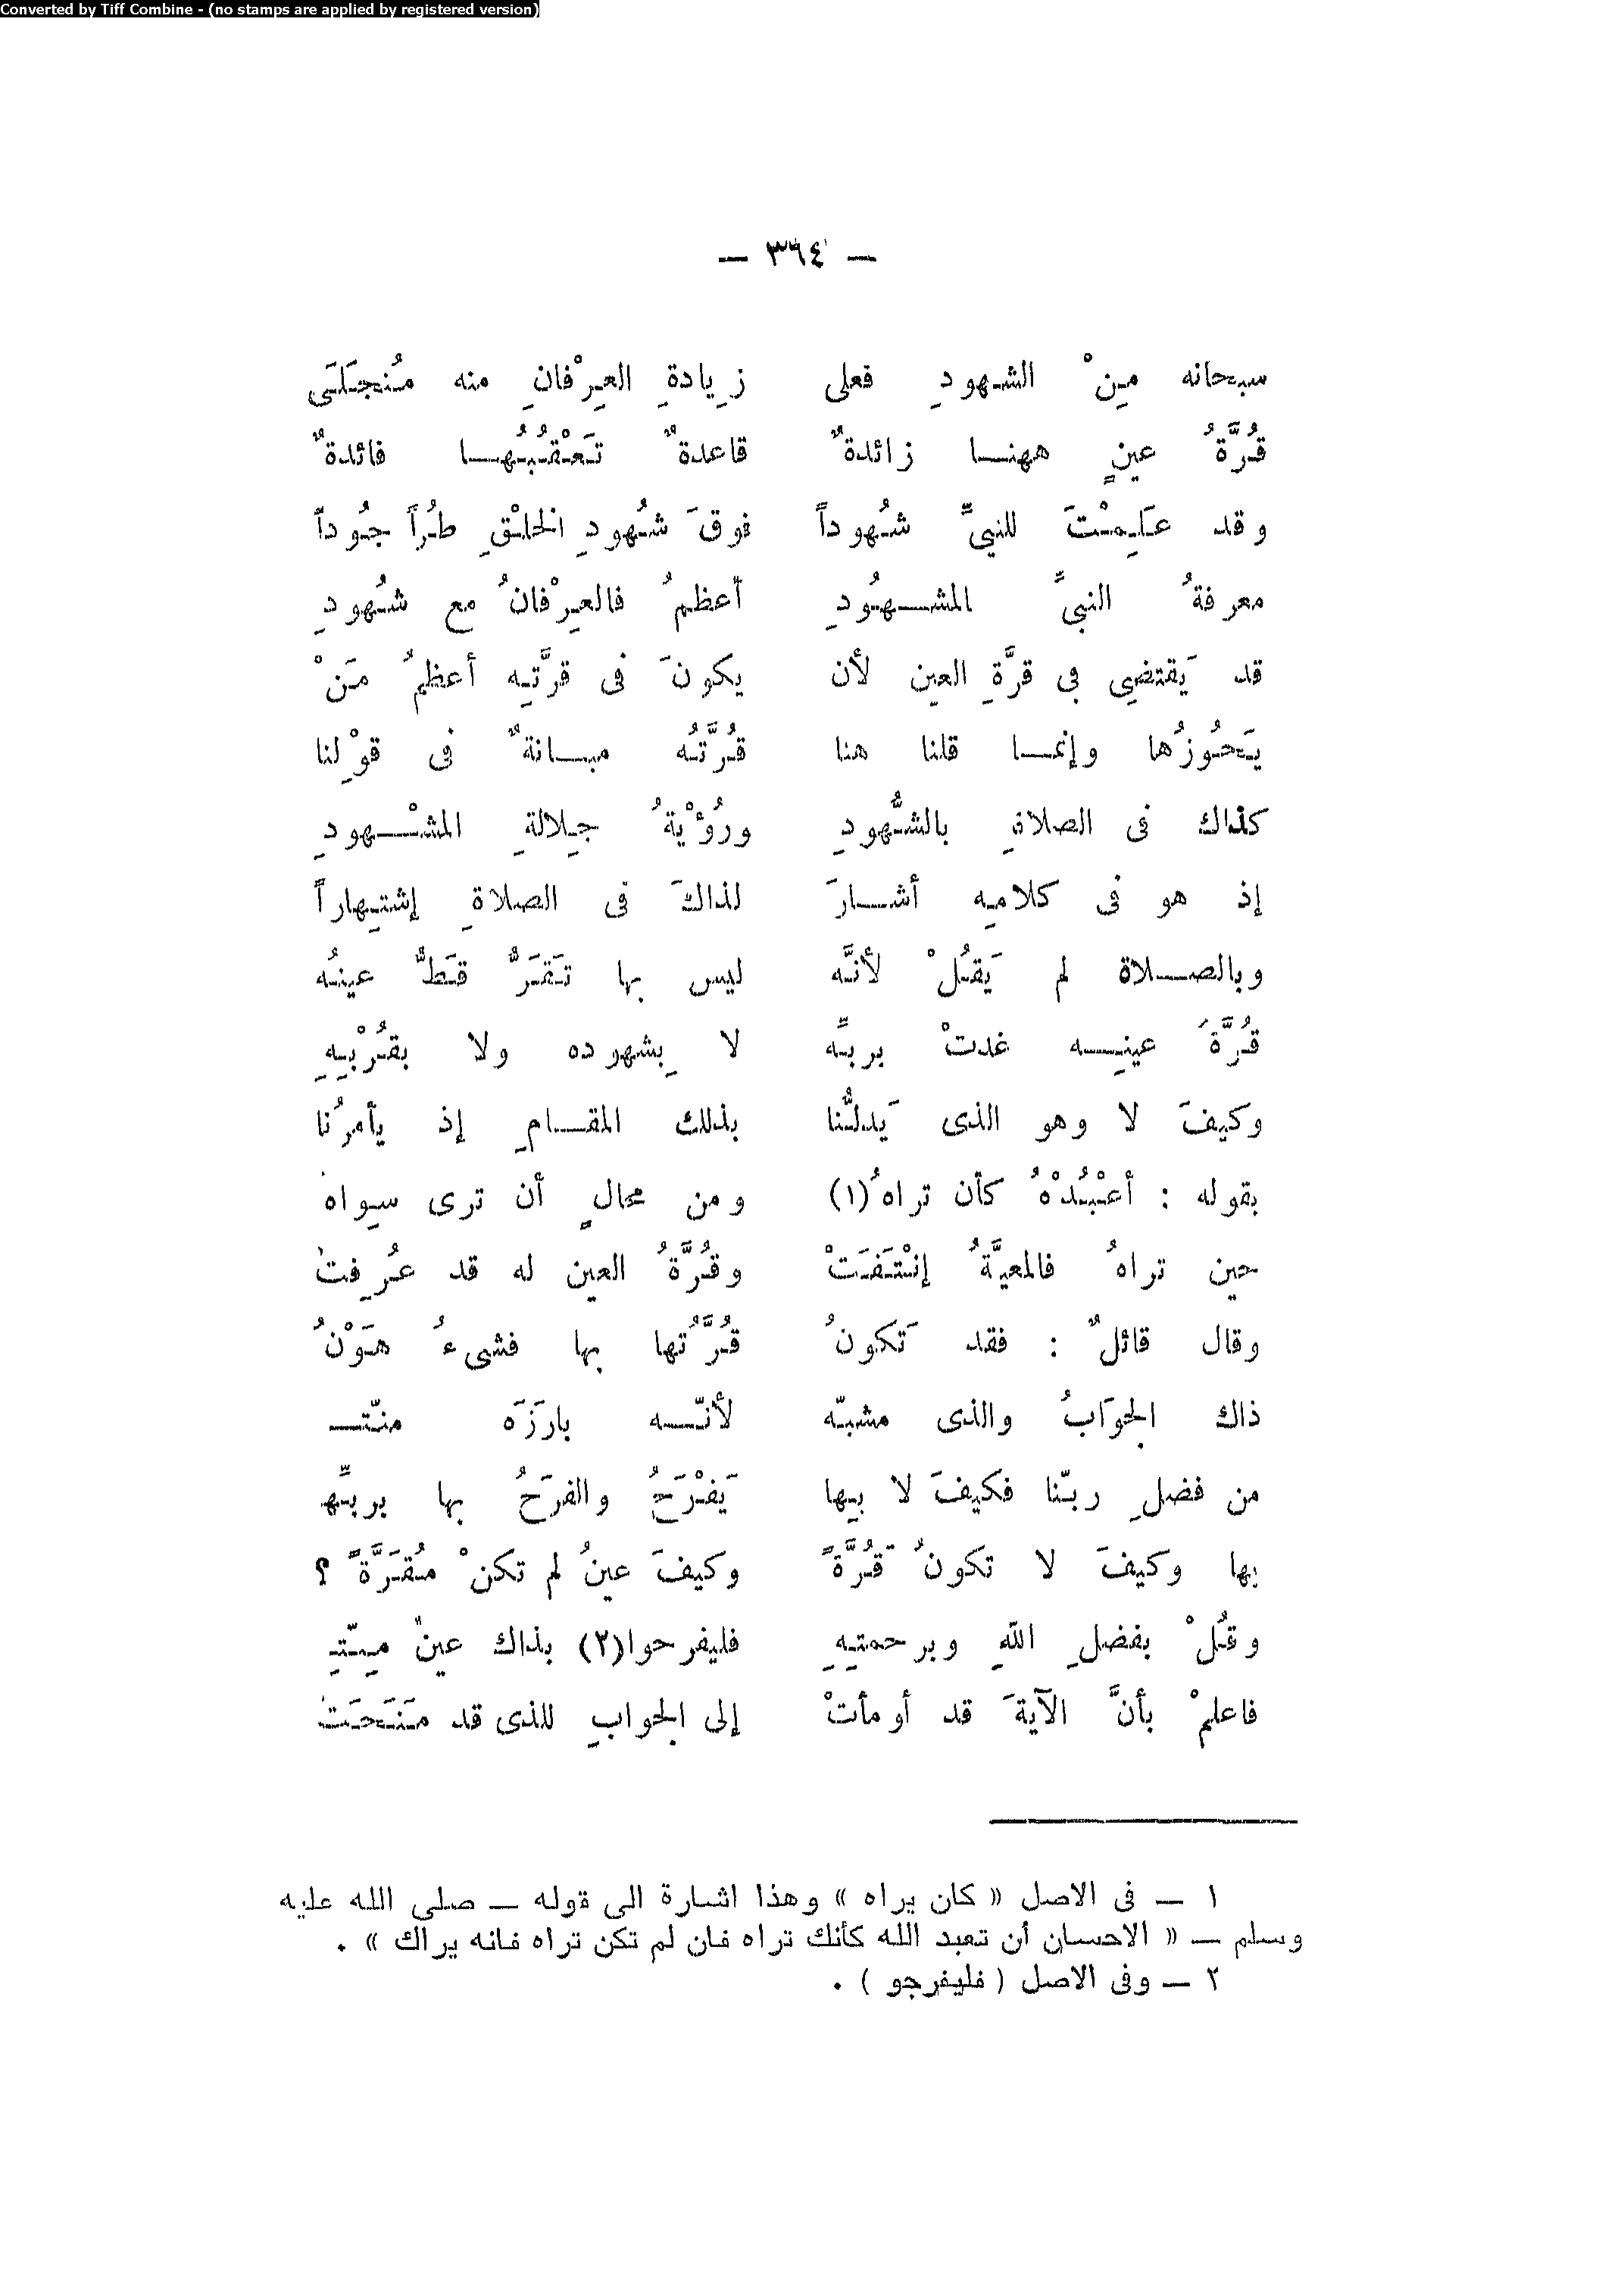 Converted by Tiff Combine - (no stamps are applied by registered version)
— ٣٦٤ —
سبحانه مِنْ الشهودِ فعلى زِيادةِ العِرْفانِ منه مُنجَلَى
قُرَّةُ عينٍ ههنا زائدةٌ قاعدةٌ تَعْقُبُها فائدةٌ
وقد عَلِمْتَ للنبيِّ شُهوداً فوقَ شُهودِ الخلْقِ طُراً جُوداً
معرفةُ النبيِّ المشهُودِ أعظمُ فالعِرْفانُ مع شُهودِ
قد يَقتضِى فى قرَّةِ العينِ لأن يكونَ فى قرَّتِه أعظمُ مَنْ
يَحُوزُها وإنما قلنا هنا قُرَّتُه مبانةٌ فى قوْلِنا
كذاك فى الصلاةِ بالشُّهودِ ورُؤْيةُ جِلالةِ المشْهودِ
إذ هو فى كلامِه أشارَ لذاكَ فى الصلاةِ إشتِهاراً
وبالصلاة لم يَقُلْ لأنَّه ليس بها تَقَرُّ قَطُّ عينُه
قُرَّةَ عينِه غدتْ بربِّه لا بِشهوده ولا بقُرْبِهِ
وكيفَ لا وهو الذى يَدلُّنا بذلك المقامِ إذ يأمرُنا
بقوله : أعْبُدْهُ كأن تراهُ(١) ومن محالٍ أن ترى سِواه
حين تراهُ فالمعيَّةُ إنْتَفَتْ وقُرَّةُ العينِ له قد عُرِفتْ
وقال قائلٌ : فقد تَكونُ قُرَّتُها بها فشىءُ هَوْنُ
ذاك الجوَابُ والذى مشبّه لأنّه بارَزَه منّته
من فضلِ ربّنا فكيفَ لا بِها يَفْرَحُ والفرَحُ بها بربِّها
بها وكيفَ لا تكونُ قُرَّةً وكيفَ عينُ لم تكنْ مُقَرَّةً ؟
وقُلْ بفضلِ اللهِ وبرحمتِهِ فليفرحوا(٢) بذاك عينٌ مِنّتِهِ
فاعلمْ بأنَّ الآيةَ قد أومأتْ إلى الجوابِ للذى قد مَنَحَتْ
١ — فى الاصل « كان يراه » وهذا اشارة الى قوله — صلى الله عليه
وسلم — « الاحسان أن تعبد الله كأنك تراه فان لم تكن تراه فانه يراك » .
٢ — وفى الاصل ( فليفرجو ) .